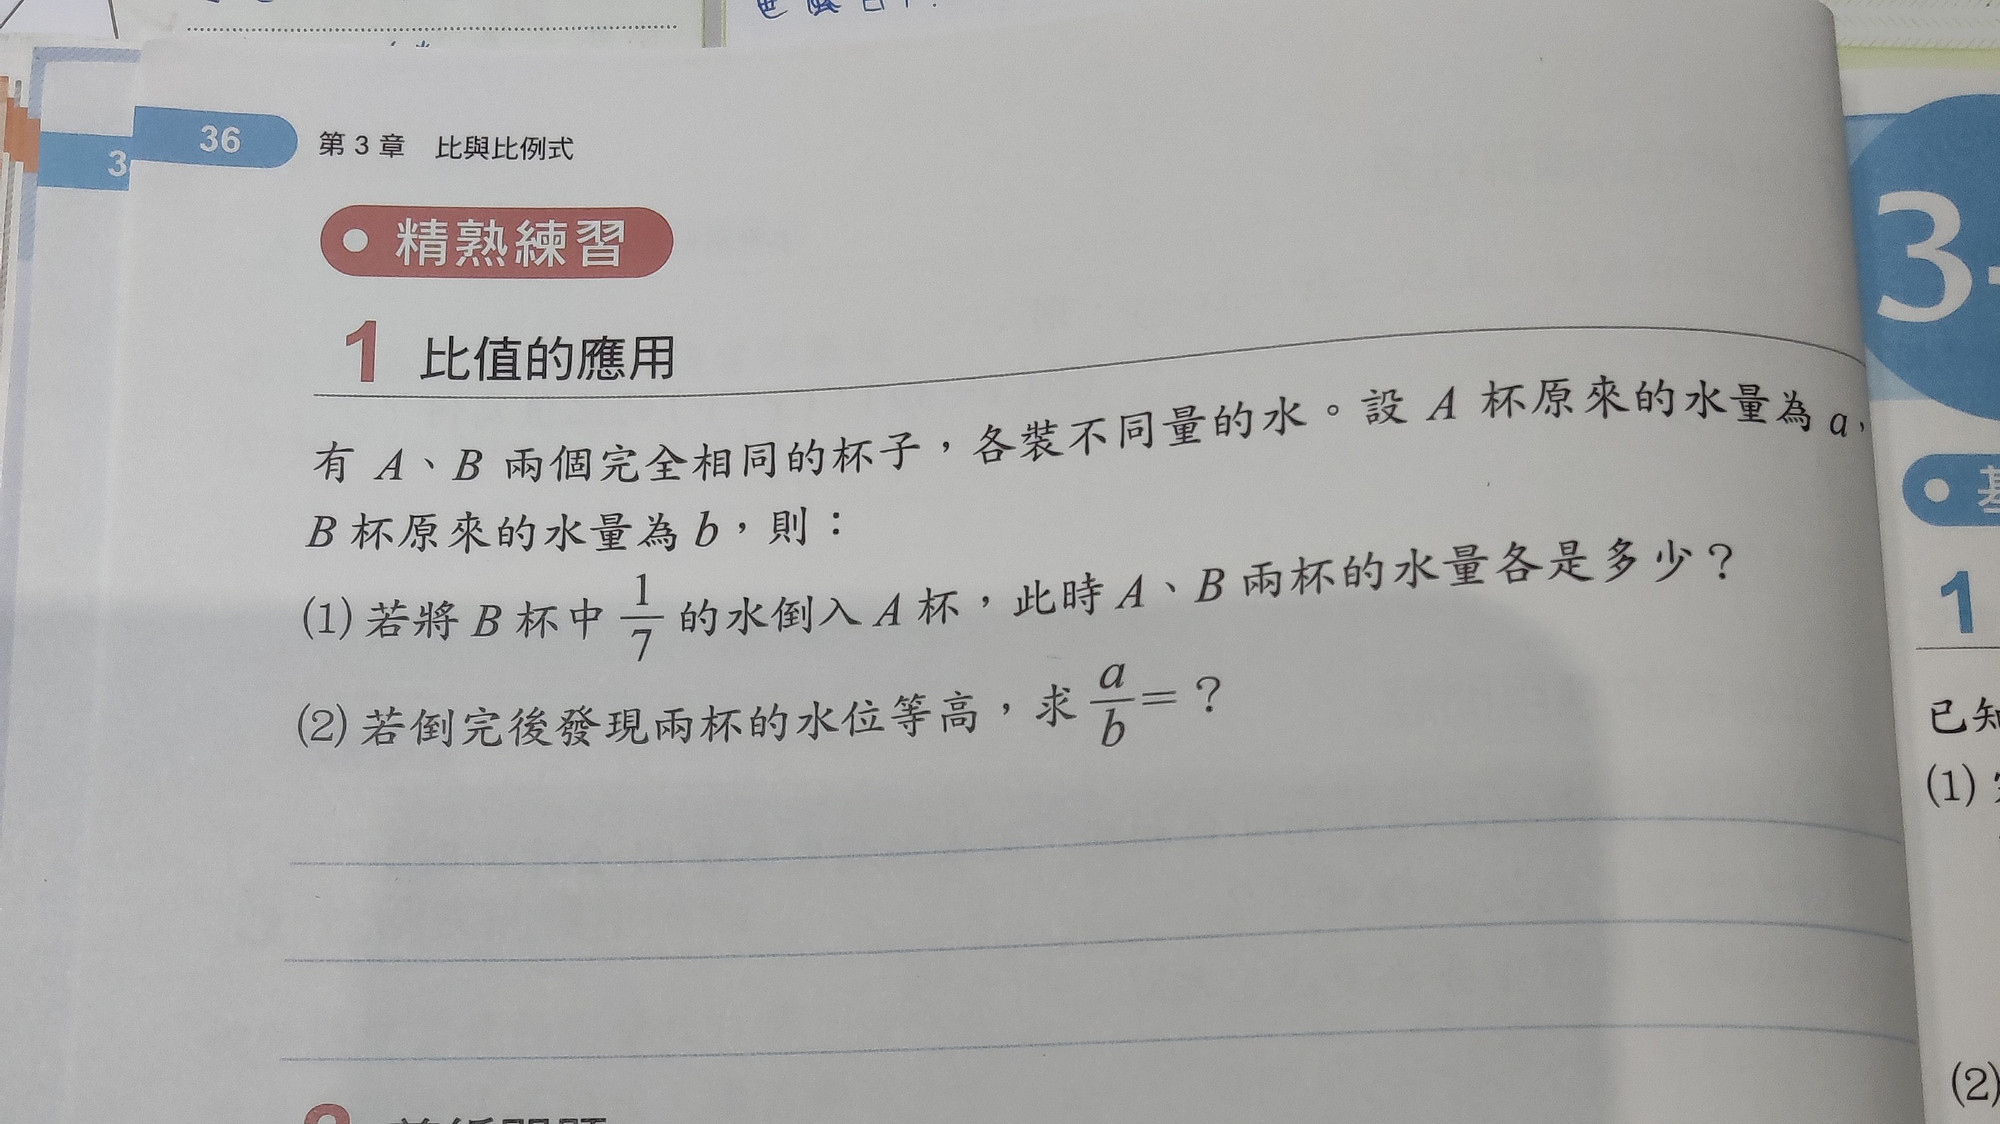 36 第3章 比與比例式
精熟練習
1 比值的應用
有 A、B 兩個完全相同的杯子，各裝不同量的水。設 A 杯原來的水量為 a，
B 杯原來的水量為 b，則：
(1) 若將 B 杯中 1/7 的水倒入 A 杯，此時 A、B 兩杯的水量各是多少？
(2) 若倒完後發現兩杯的水位等高，求 a/b＝？
3
3-
1
已知
(1)
(2)